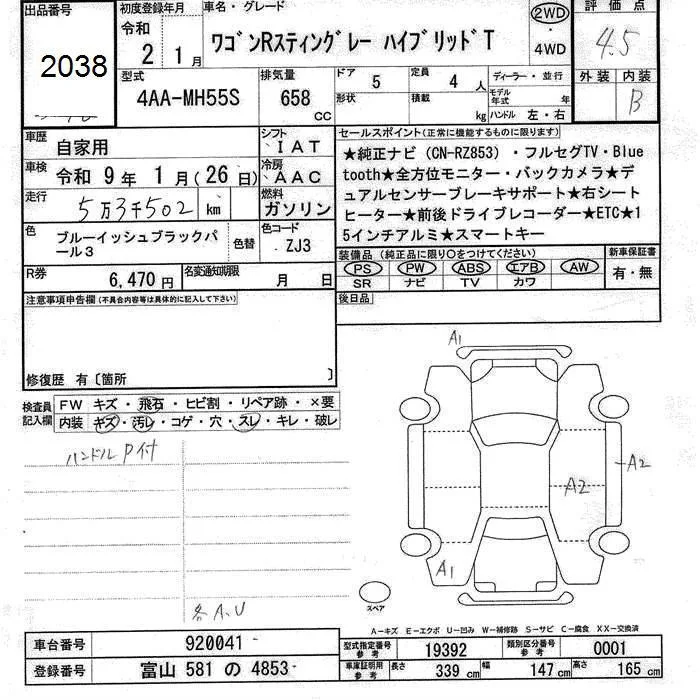 出品番号
2038
初度登録年月
令和
2年1月
車名・グレード
ワゴンRスティングレー ハイブリッドT
2WD
・
4WD
評価点
4.5
外装 内装
B
型式
4AA-MH55S
排気量
658
CC
ドア 5
形状
定員 4人
積載 kg
ディーラー・並行
モデル年式 年
ハンドル 左・右
車歴
自家用
シフト
IAT
車検
令和9年1月(26日)
冷房
AAC
走行
5万3千502 km
燃料
ガソリン
色
ブルーイッシュブラックパール3
色替
色コード
ZJ3
R券
6,470円
名変通知期限
月 日
セールスポイント(正常に機能するものに限ります)
★純正ナビ(CN-RZ853)・フルセグTV・Blue
tooth★全方位モニター・バックカメラ★デ
ュアルセンサーブレーキサポート★右シート
ヒーター★前後ドライブレコーダー★ETC★1
5インチアルミ★スマートキー
装備品(純正品に限り○をつけてください)
PS PW ABS エアB AW
SR ナビ TV カワ
新車保証書
有・無
後日品
注意事項申告欄(不具合内容等は具体的に記入して下さい)
修復歴 有〔箇所 〕
検査員
記入欄
FW キズ・飛石・ヒビ割・リペア跡・×要
内装 キズ・汚レ・コゲ・穴・スレ・キレ・破レ
ハンドルP付
各A、U
A1
A2
A2
A1
スペア
A-キズ E-エクボ U-凹み W-補修跡 S-サビ C-腐食 XX-交換済
車台番号
920041
登録番号
富山 581 の 4853
型式指定番号
参考
19392
類別区分番号
参考
0001
車庫証明用
参考
長さ 339 cm
幅 147 cm
高さ 165 cm